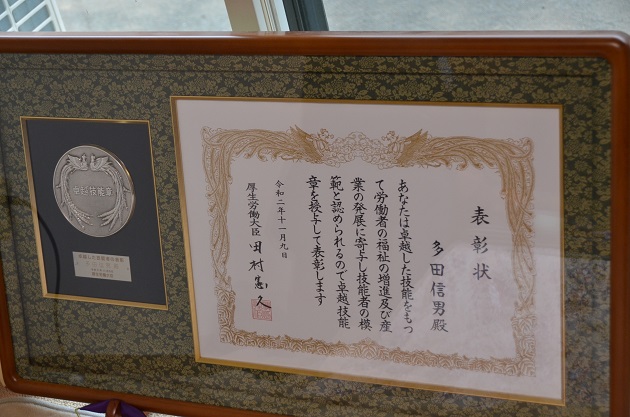 表彰状
多田信男殿
あなたは卓越した技能をもつ
て労働者の福祉の増進及び産
業の発展に寄与し技能者の模
範と認められるので卓越技能
章を授与して表彰します
令和二年十一月九日
厚生労働大臣 田村憲久
卓越技能章